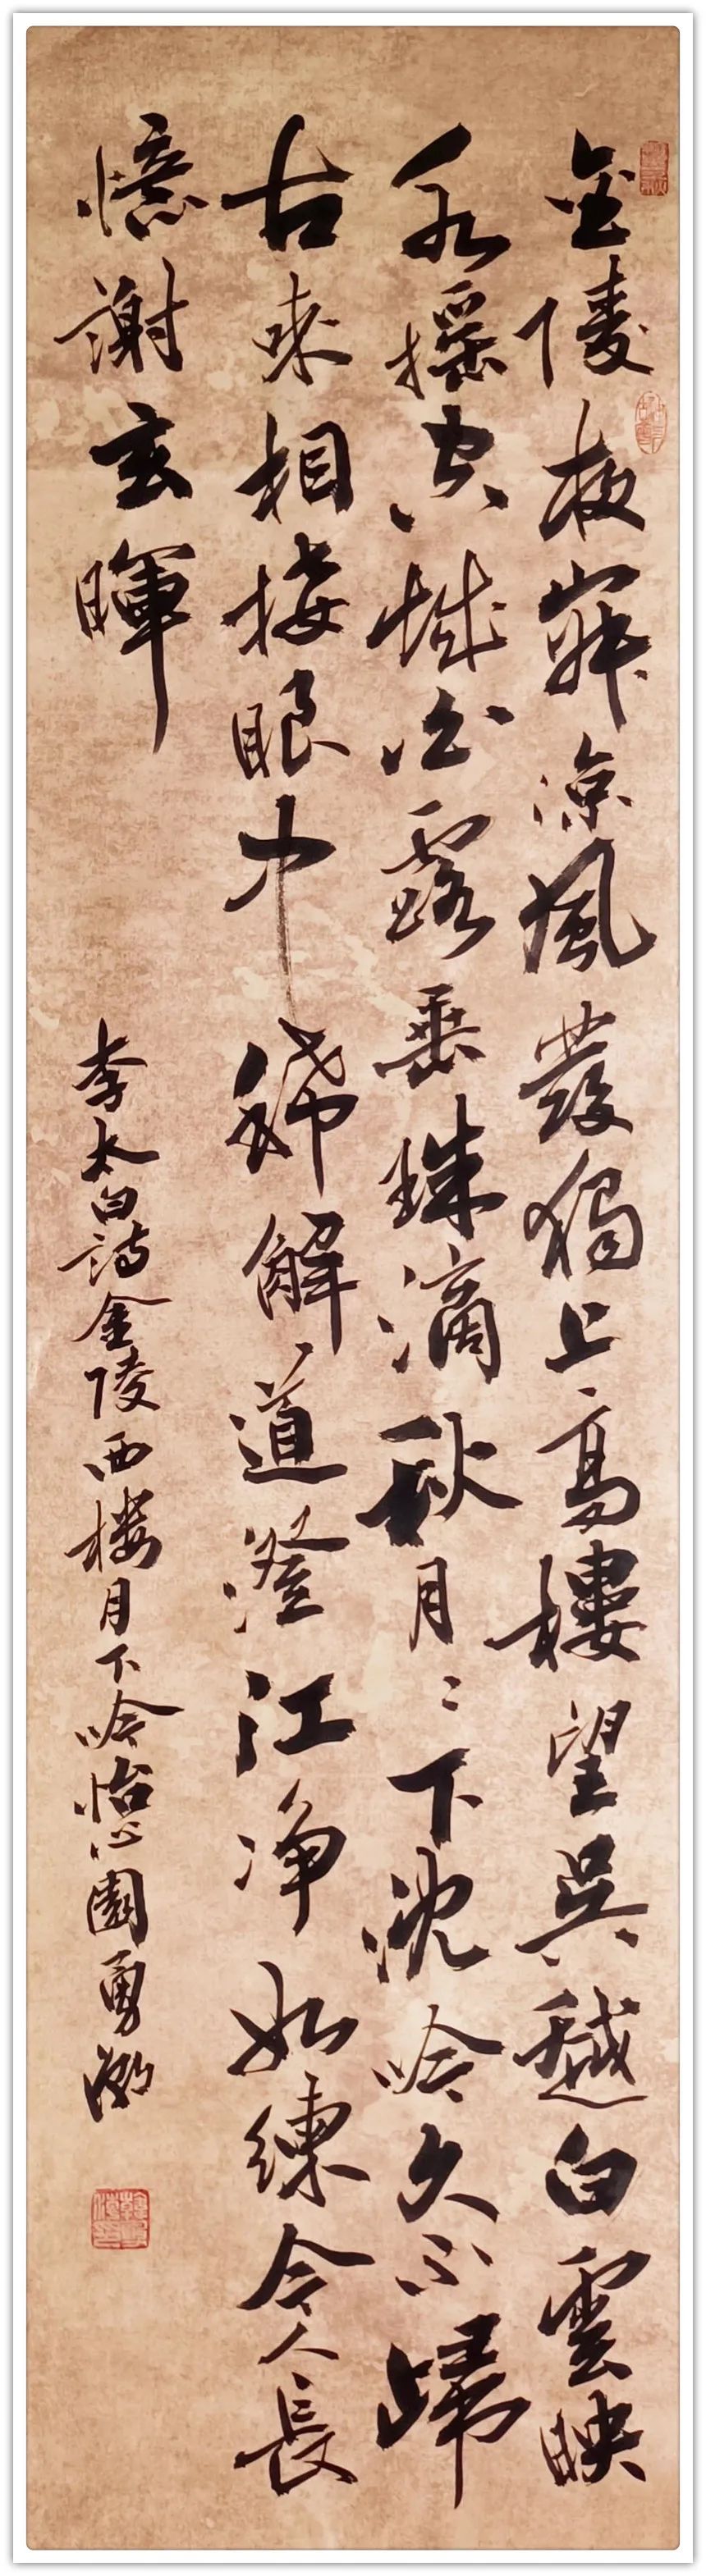 金陵夜寂涼風發獨上高樓望吳越白雲映
水搖空城白露垂珠滴秋月〻下沈吟久不歸
古來相接眼中稀解道澄江净如練令人長
憶謝玄暉
李太白詩金陵西楼月下吟怡心園勇